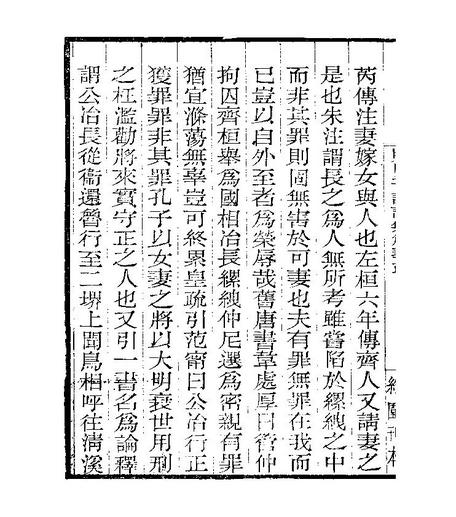 芮傳注妻嫁女與人也左桓六年傳齊人又請妻之
是也朱注謂長之為人無所考雖嘗陷於縲絏之中
而非其罪則固無害於可妻也夫有罪無罪在我而
已豈以自外至者為榮辱哉舊唐書韋處厚曰管仲
拘囚齊桓舉為國相冶長縲絏仲尼選為密親有罪
猶宜滌蕩無辜豈可終累皇疏引范甯曰公冶行正
獲罪罪非其罪孔子以女妻之將以大明衰世用刑
之枉濫勸將來實守正之人也又引一書名為論釋
謂公冶長從衞還魯行至二堺上聞鳥相呼往清溪